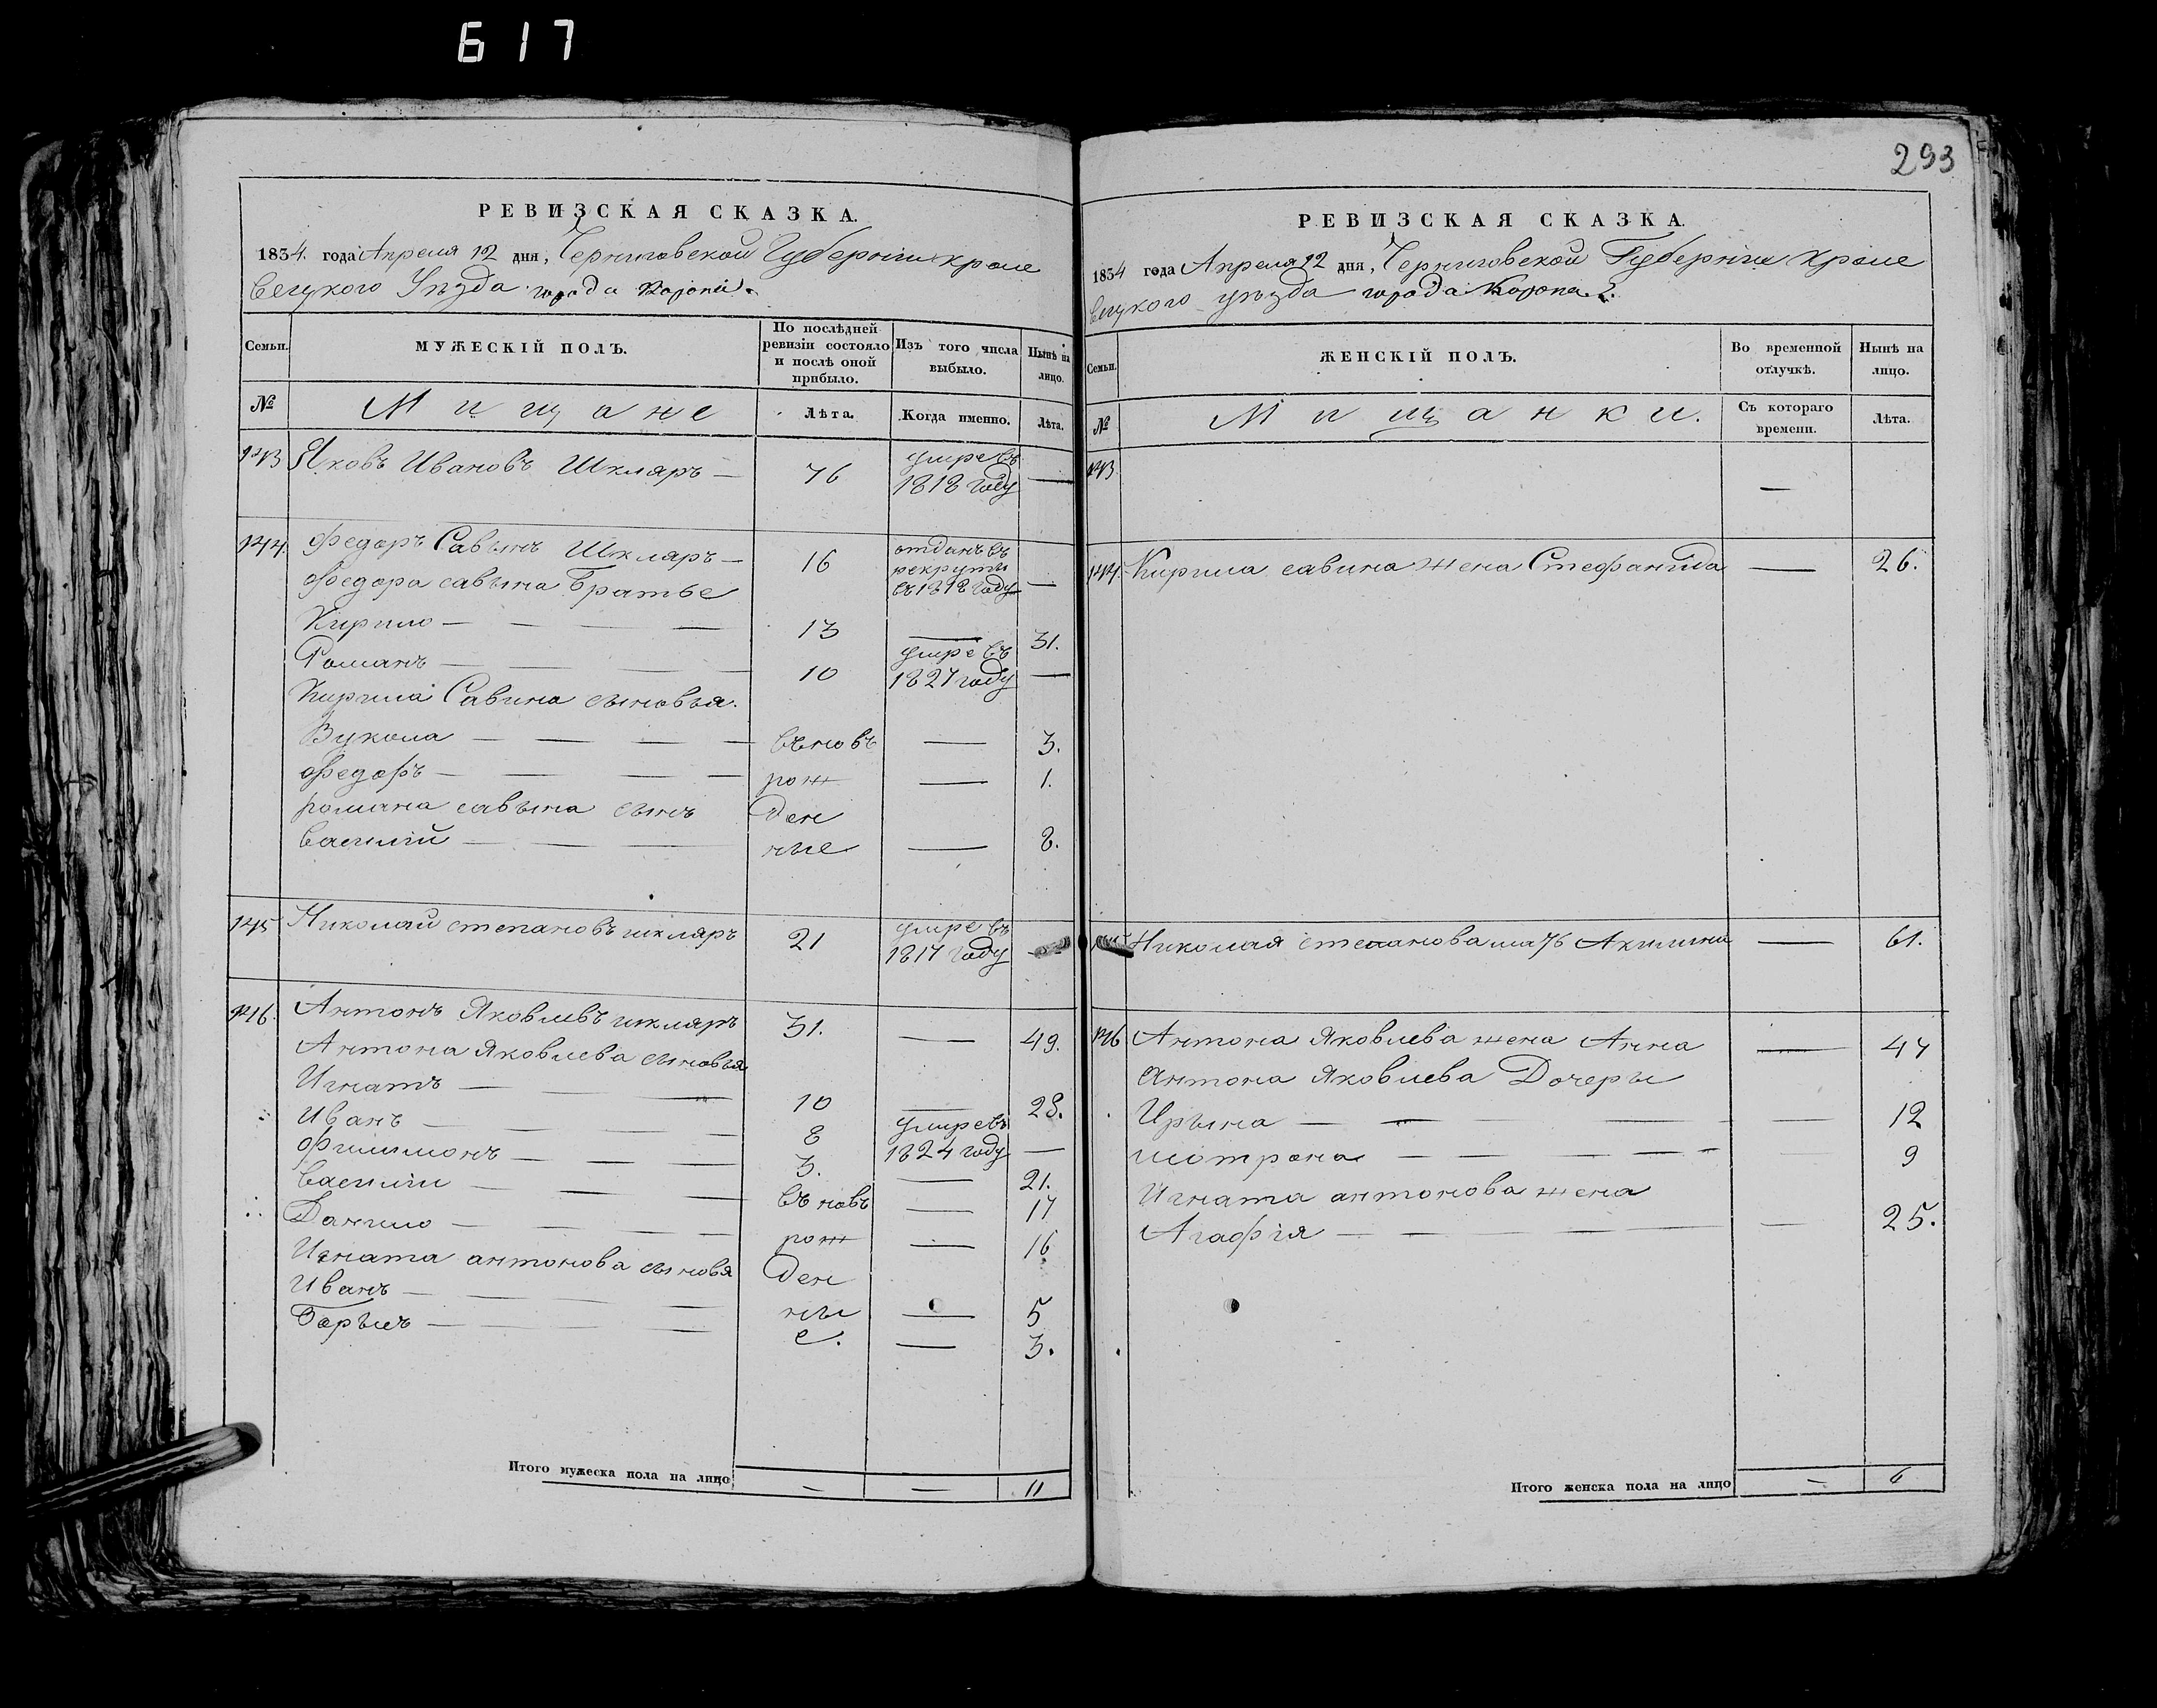 617
РЕВИЗСКАЯ СКАЗКА.
1834. года Апреля 12 дня, Черниговской Губернии Кроле
вецкого Уезда города Коропа.
Семьи.
МУЖЕСКІЙ ПОЛЪ.
По послѣдней ревизіи состояло и послѣ оной прибыло.
Изъ того числа выбыло.
Нынѣ на лицо.
№
Мищане
Лѣта.
Когда именно.
Лѣта.
143 Яковъ Ивановъ Шкляръ — 76 умре въ 1818 году —
144. Федоръ Савынъ Шкляръ — 16 отданъ въ рекруты въ 1818 году —
Федора савына братье
Кирило — — — — 13 — 31.
Романъ — — — 10 умре въ 1827 году —
Кирила Савина сыновья.
Вукола — — — — въновь — 3.
Федоръ — — — — рож — 1.
романа савына сынъ ден
василий — — — ные — 8.
145 Николай степановъ шкляръ 21 умре въ 1817 году —
146. Антонъ Яковлевъ шкляръ 31. — 49.
Антона Яковлева сыновья
Игнатъ — — — 10 — 28.
Иванъ — — — — 8 умре въ 1824 году —
Филимонъ — — — — 3. — 21.
василий — — — — въ новь — 17
Данило — — — — рож — 16
Игната антонова сыновя ден
Иванъ — — — — ны — 5
Борысъ — — — — е. — 3.
Итого мужеска пола на лицо — — 11
293
РЕВИЗСКАЯ СКАЗКА.
1834 года Апреля 12 дня, Черниговской Губернии Кроле
вецкого уезда города Коропа.
Семьи.
ЖЕНСКІЙ ПОЛЪ.
Во временной отлучкѣ.
Нынѣ на лицо.
№
Мищанки.
Съ котораго времени.
Лѣта.
143 —
144. Кирила савина жена Стефанида — 26.
Николая степанова мать Акилина — 61.
146 Антона Яковлева жена Анна — 47
Антона Яковлева Дочеры
Ирына — — — — — 12
мотрона — — — — — — 9
Игната антонова жена
Агафия — — — — — 25.
Итого женска пола на лицо — 6